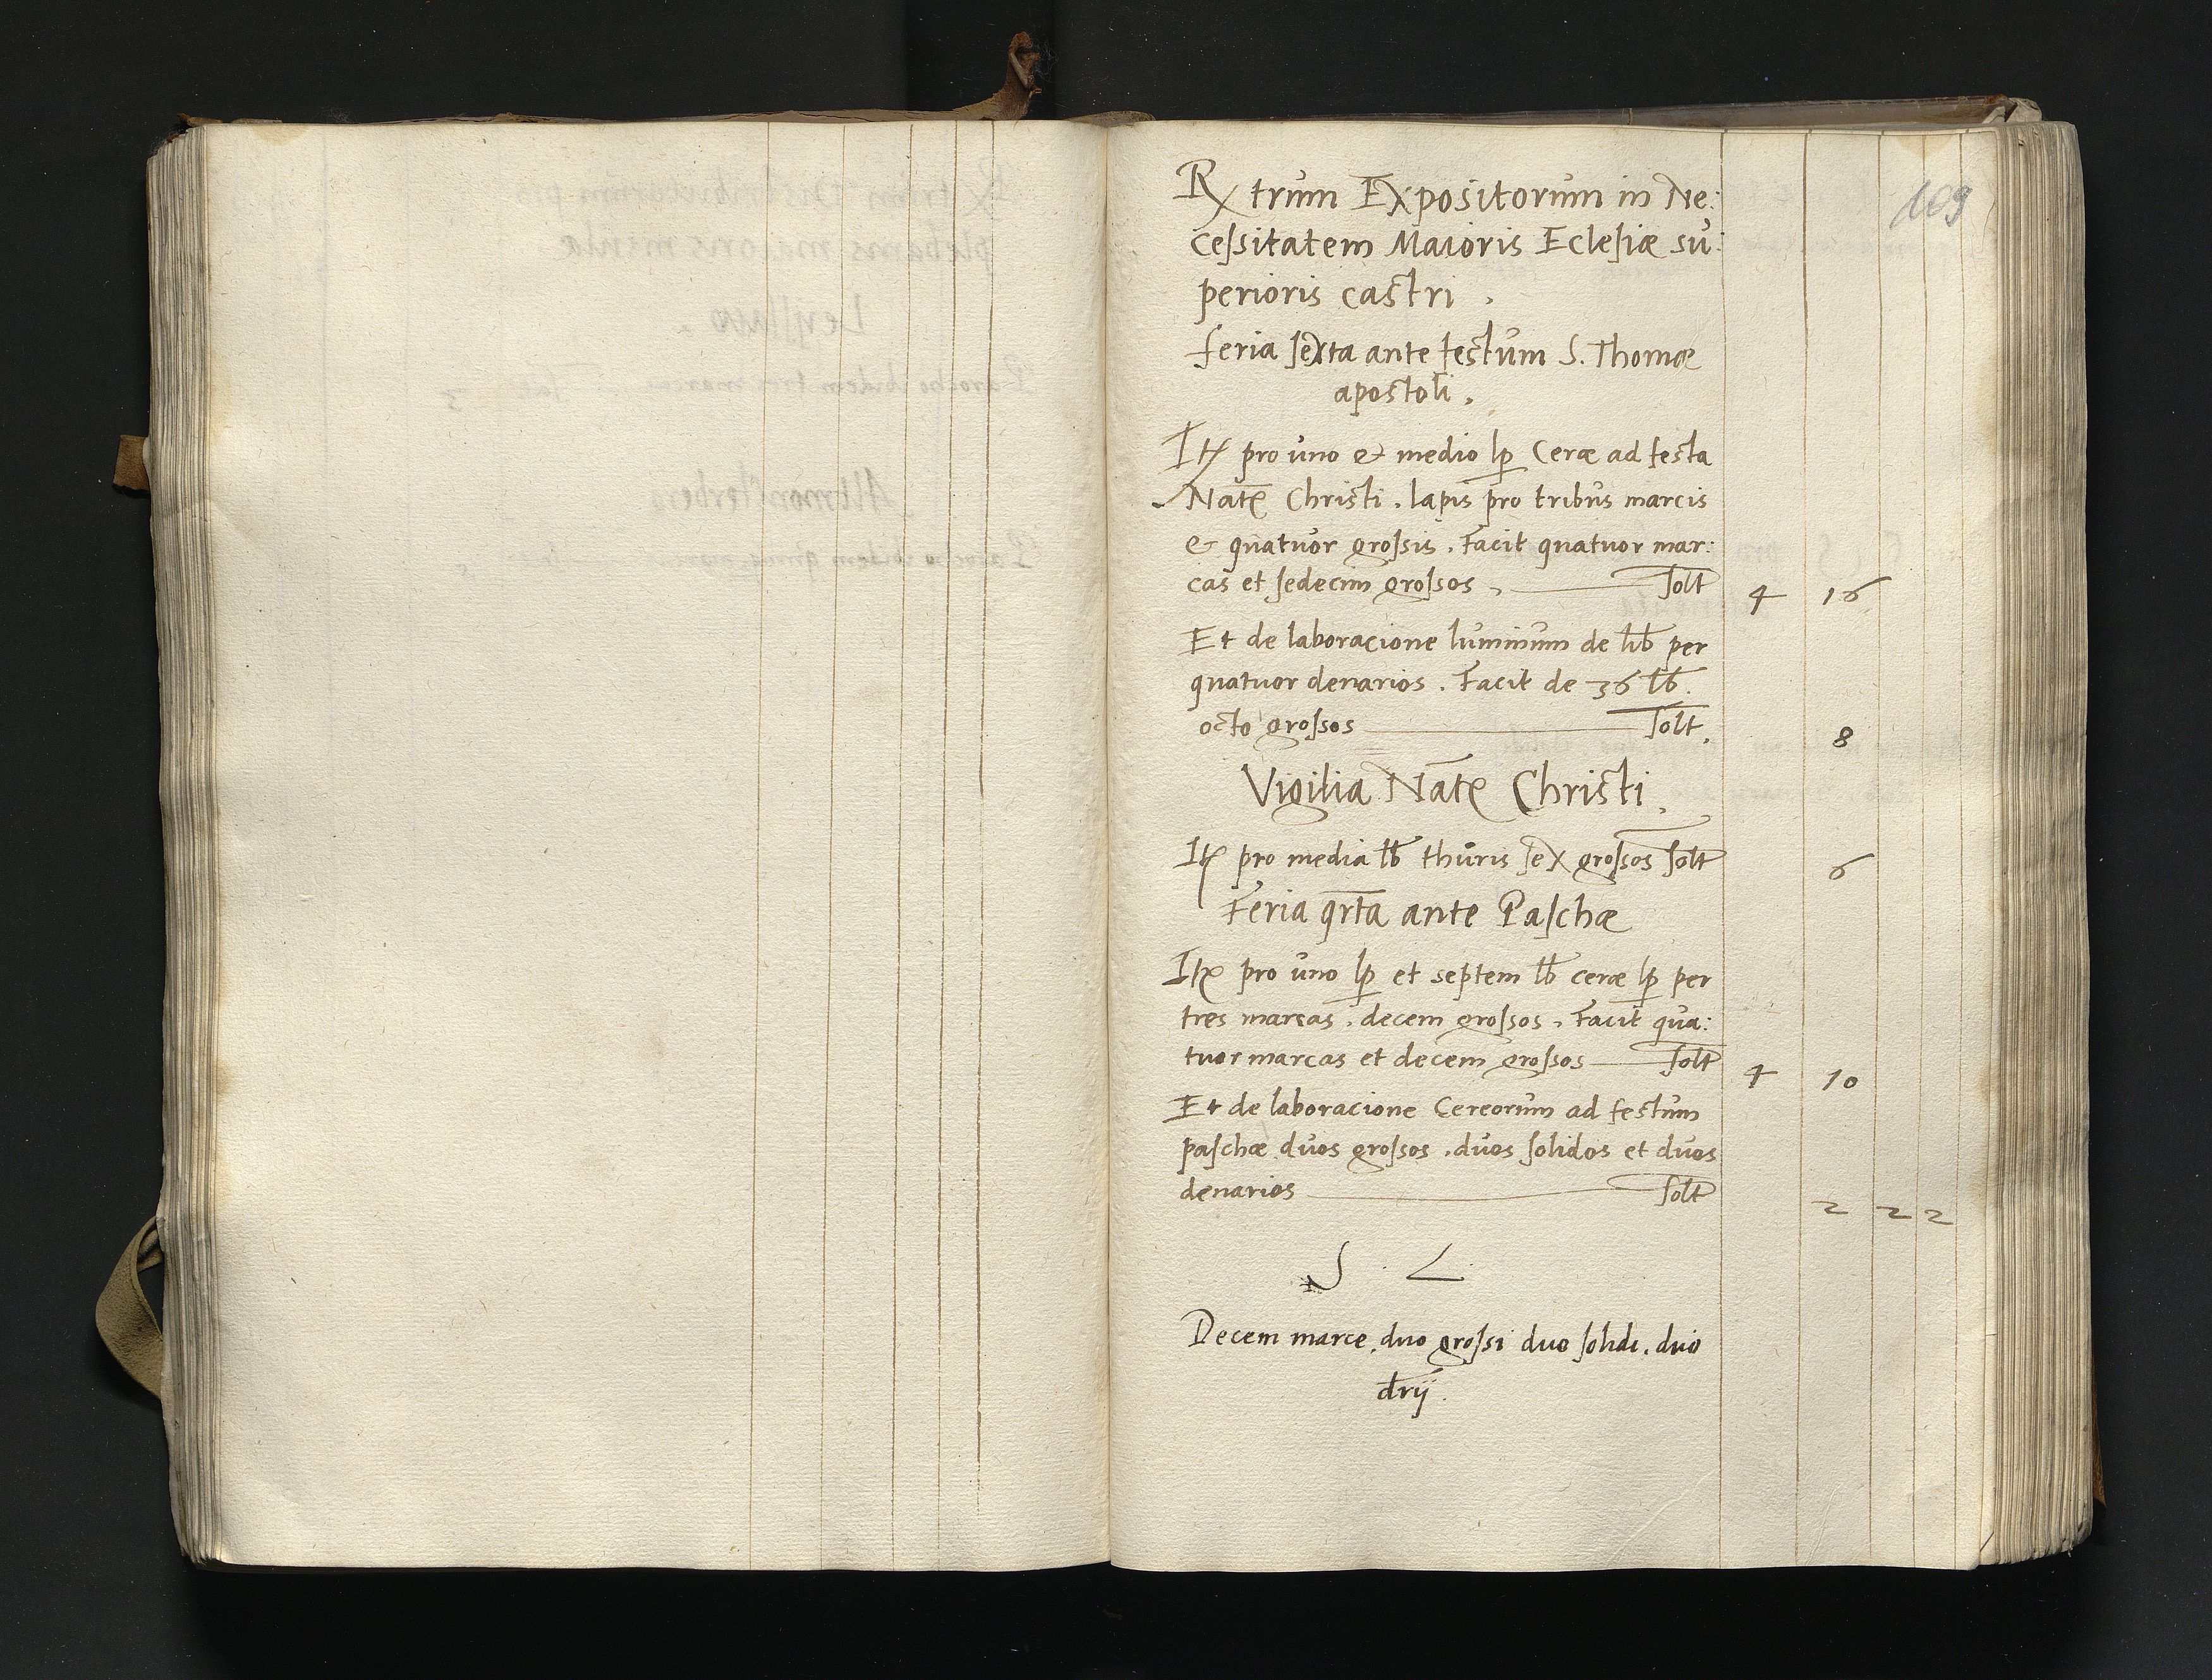 109
Rx trum Expositorum in Ne:
ceſsitatem Maioris Ecleſiæ su:
perioris castri .
feria ſexta ante festum S. Thomæ
apostoli .
Itꝫ pro uno & medio lp Ceræ ad festa
Natꝭ Christi . lapis pro tribus marcis
& quatuor groſsis . Facit quatuor mar:
cas et ſedecim groſsos . ſolt 4 16
Et de laboracione luminum de lib per
quatuor denarios . Facit de 36 lb .
octo groſsos ſolt . 8
Vigilia Natꝭ Christi .
Itꝫ pro media lb thuris ſex groſsos ſolt 6
Feria qrta ante Paſchæ
Itꝫ pro uno lp et septem lb ceræ lp per
tres marcas . decem groſsos . Facit qua:
tuor marcas et decem groſsos ſolt 4 10
Et de laboracione Cereorum ad festum
paſchæ duos groſsos . duos ſolidos et duos
denarios ſolt 2 2 2
Decem marce . duo groſsi duo ſolidi . duo
drij .